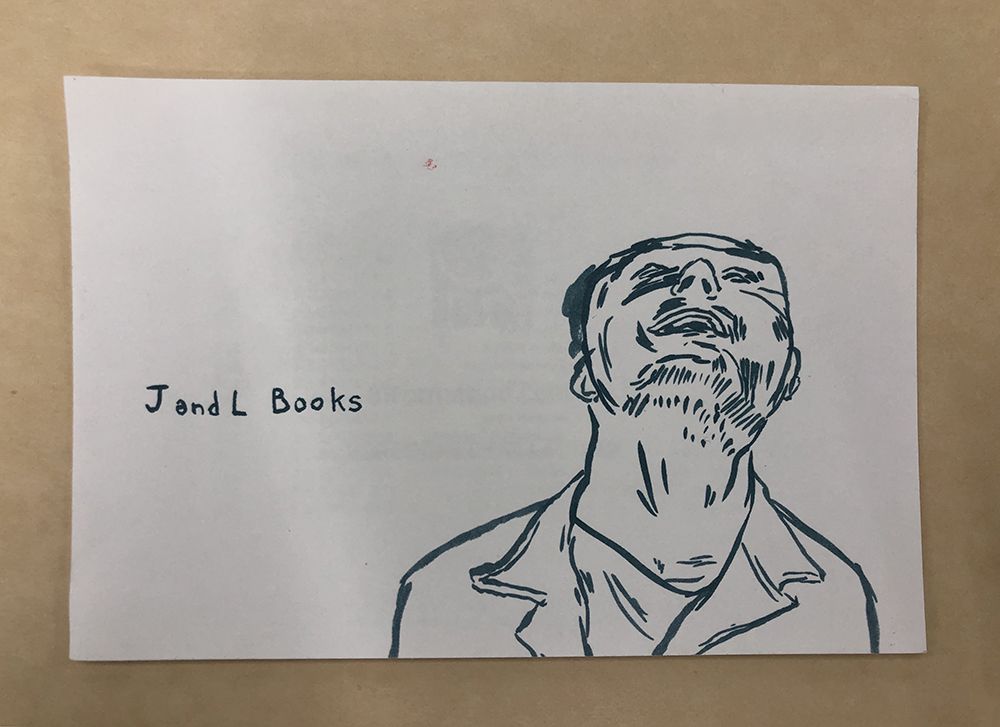 J and L Books